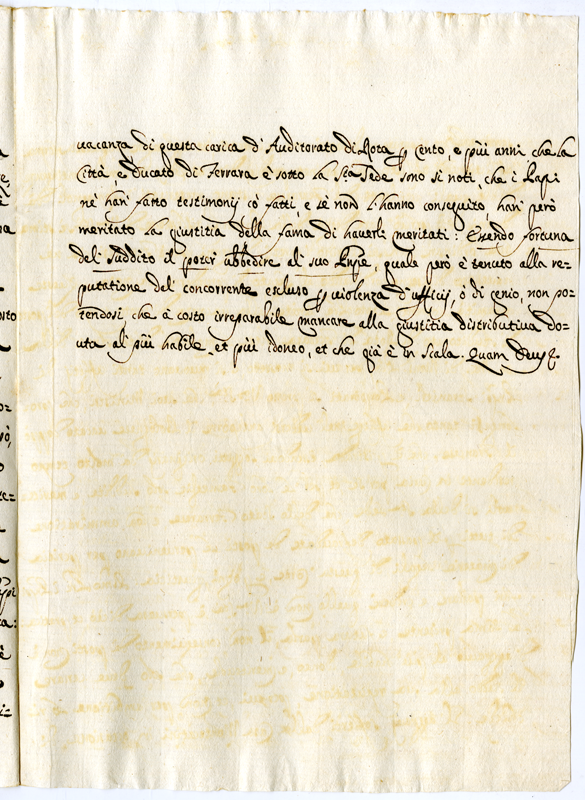 vacanza, di questa carica d'Auditorato di Rota p cento, e più anni che la
Città, e Ducato di Ferrara è sotto la S.ta Sede sono sì noti, che i
nè han' fatto testimonij cò fatti, e sè non l'hanno conseguito, han' però
meritato la giustitia della fama di haverli meritati: Essendo fortuna
del' suddito il poter ubbedire al' suo quale però è tenuto alla re=
putatione del' concorrente escluso p violenza d'ufficij, ò di genio, non po=
tendosi che à costo irreparabile mancare alla giustitia distributiva do=
uta al' più habile, et più idoneo, et che già è in scala. Quam